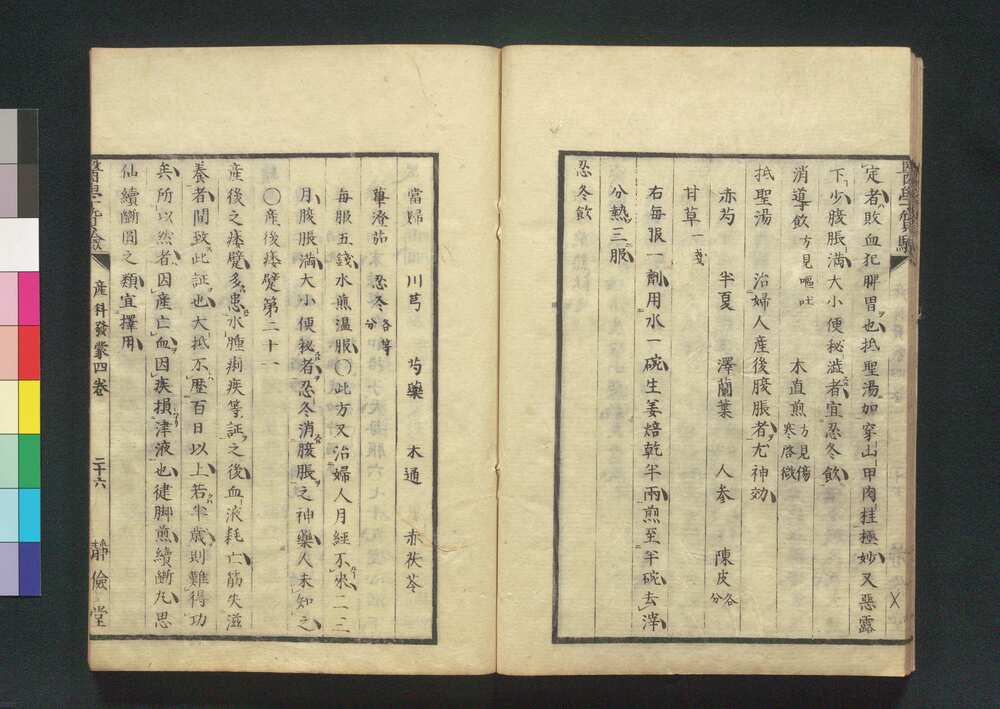 定者敗血犯脾胃也抵聖湯如穿山甲肉桂極妙又惡露
下少腹脹滿大小便秘澁者宜忍冬飲
消導飲方見嘔吐 木直煎方見傷寒啓微
抵聖湯 治婦人産後腹脹者尤神効
赤芍 半夏 澤蘭葉 人参 陳皮各分
甘草一戔
右每服一劑用水一碗生姜焙乾半兩煎至半碗去滓
分熱三服
忍冬飲
當歸 川芎 芍藥 木通 赤茯苓
蓽澄茄 忍冬各等分
每服五錢水煎温服〇此方又治婦人月經不來二三
月腹脹滿大小便秘者忍冬消腹脹之神藥人未知之
〇産後痿躄第二十一
産後之痿躄多患水腫痢疾等証之後血液耗亡筋失滋
養者間致此証也大抵不歷百日以上若半歲則難得功
矣所以然者因産亡血因疾損津液也健脚煎續斷丸思
仙續斷圓之類宜擇用
産科發蒙四卷 二十六 靜儉堂